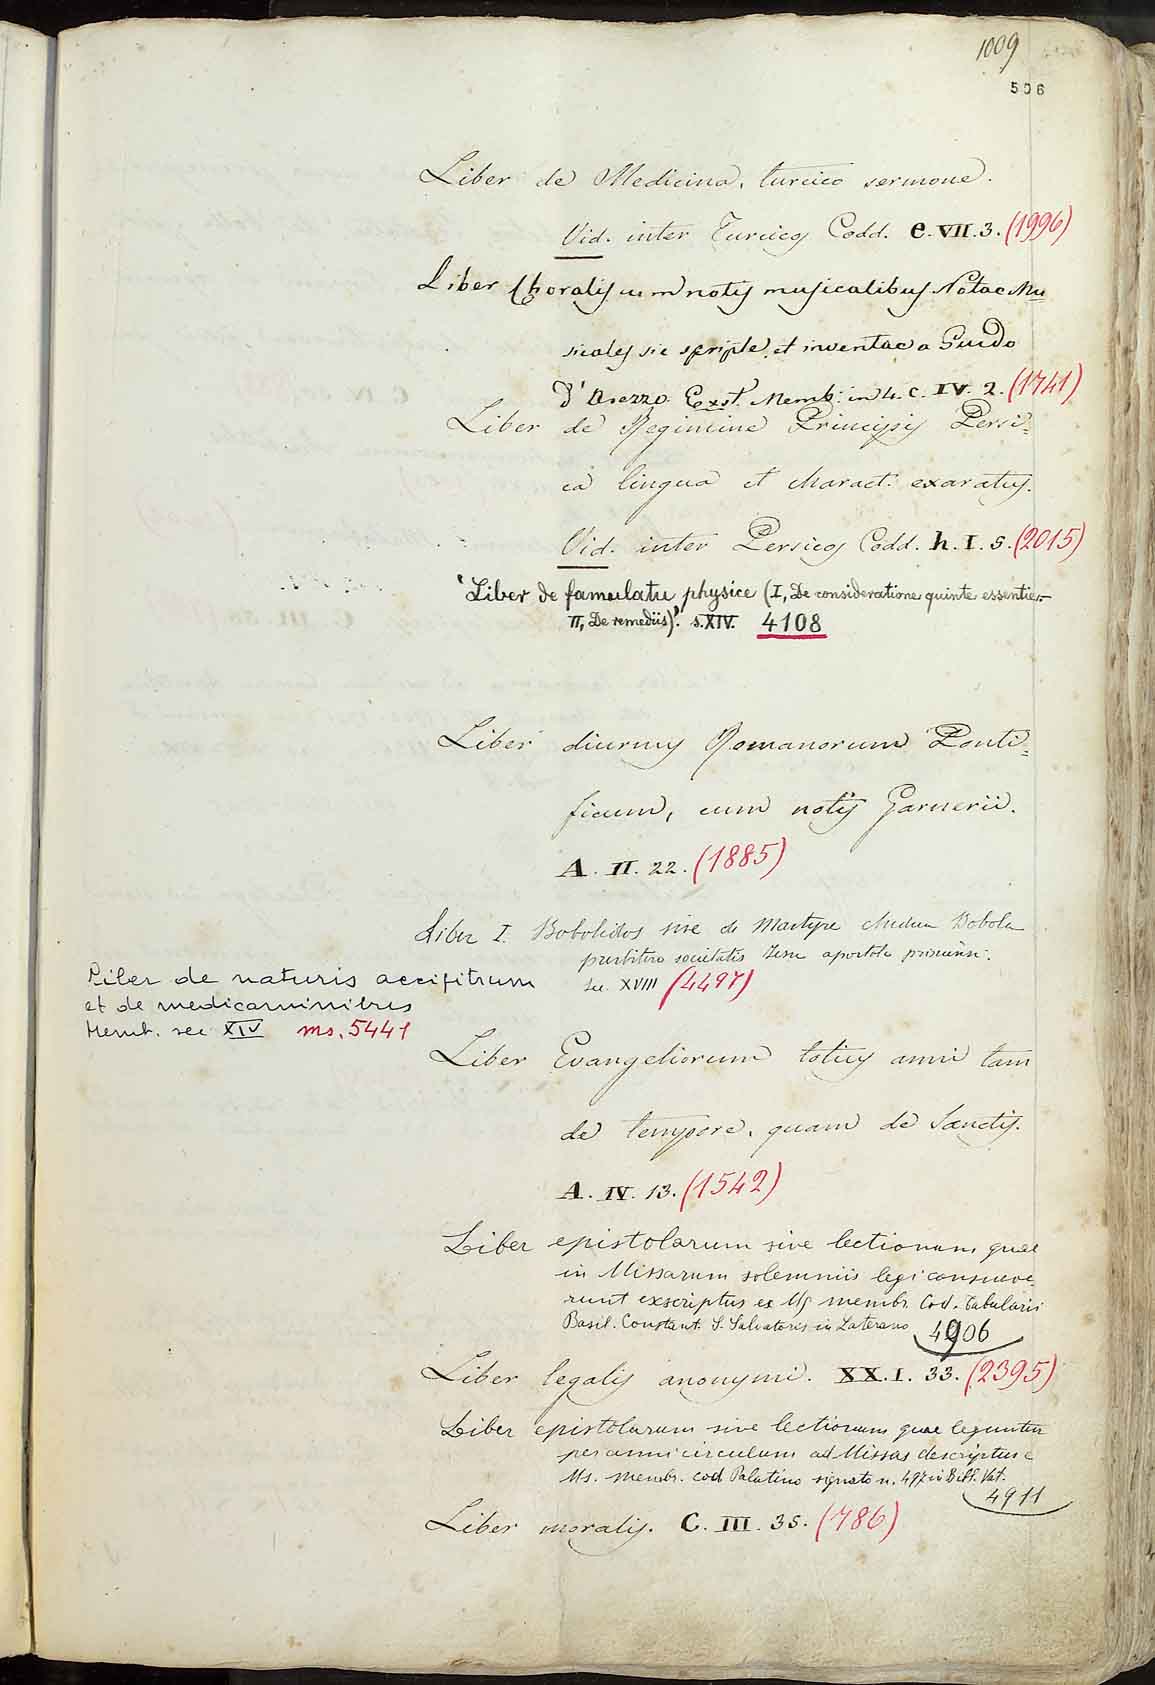 1009
506
Liber de Medicina, turcico sermone.
Vid. inter Turcicos Codd. e. VII. 3. (1996)
Liber Choralis cum notis musicalibus Notae Mu=
sicales sic scriptae et inventae a Guido
d'Arezzo. Exst. Memb: in 4. c. IV. 2. (1741)
Liber de Regimine Principis Persi=
ca lingua et charact: exaratus.
Vid. inter Persicos Codd. h. I. 5. (2015)
'Liber de famulatu physice (I, De consideratione quinte essentie.-
II, De remediis)'. s. XIV. 4108
Liber diurnus Romanorum Ponti=
ficum, cum notis Garnerii.
A. II. 22. (1885)
Liber I. Bobolidos sive de Martyre Bobola
presbitero societatis Jesu apostolo
sec. XVIII (4497)
Liber de naturis accipitrum
et de medicaminibus
Memb. sec XIV ms. 5441
Liber Evangeliorum totius anni tam
de tempore, quam de Sanctis.
A. IV. 13. (1542)
Liber epistolarum sive lectionum, quae
in Missarum solemniis legi consueve=
runt exscriptus ex Ms membr. Cod. tabularii
Basil. Constant. S. Salvatoris in Laterano 4906
Liber legalis anonymi. XX. I. 33. (2395)
Liber epistolarum sive lectionum quae leguntur
per anni circulum ad Missas descriptus e
Ms. membr. cod Palatino signato n. 497 in Bibl. Vat.
4911
Liber moralis. C. III. 35. (786)